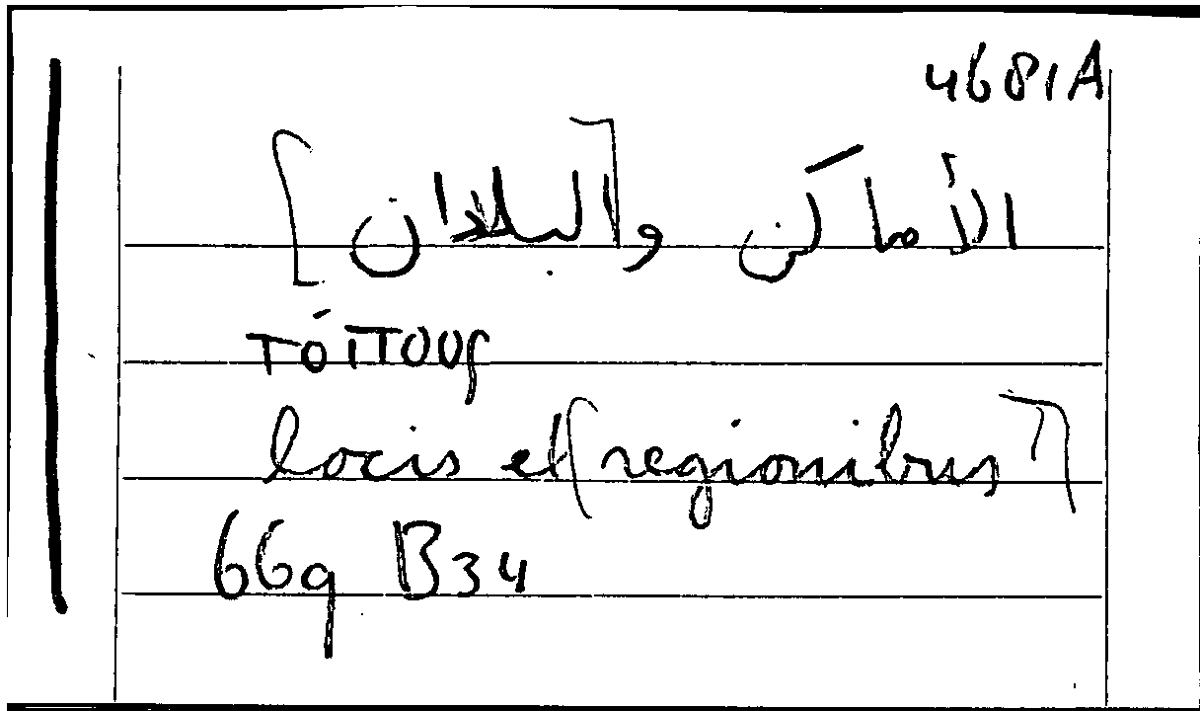 4681A
الأماكن و[البلدان]
τόπους
locis et [regionibus]
669 B34